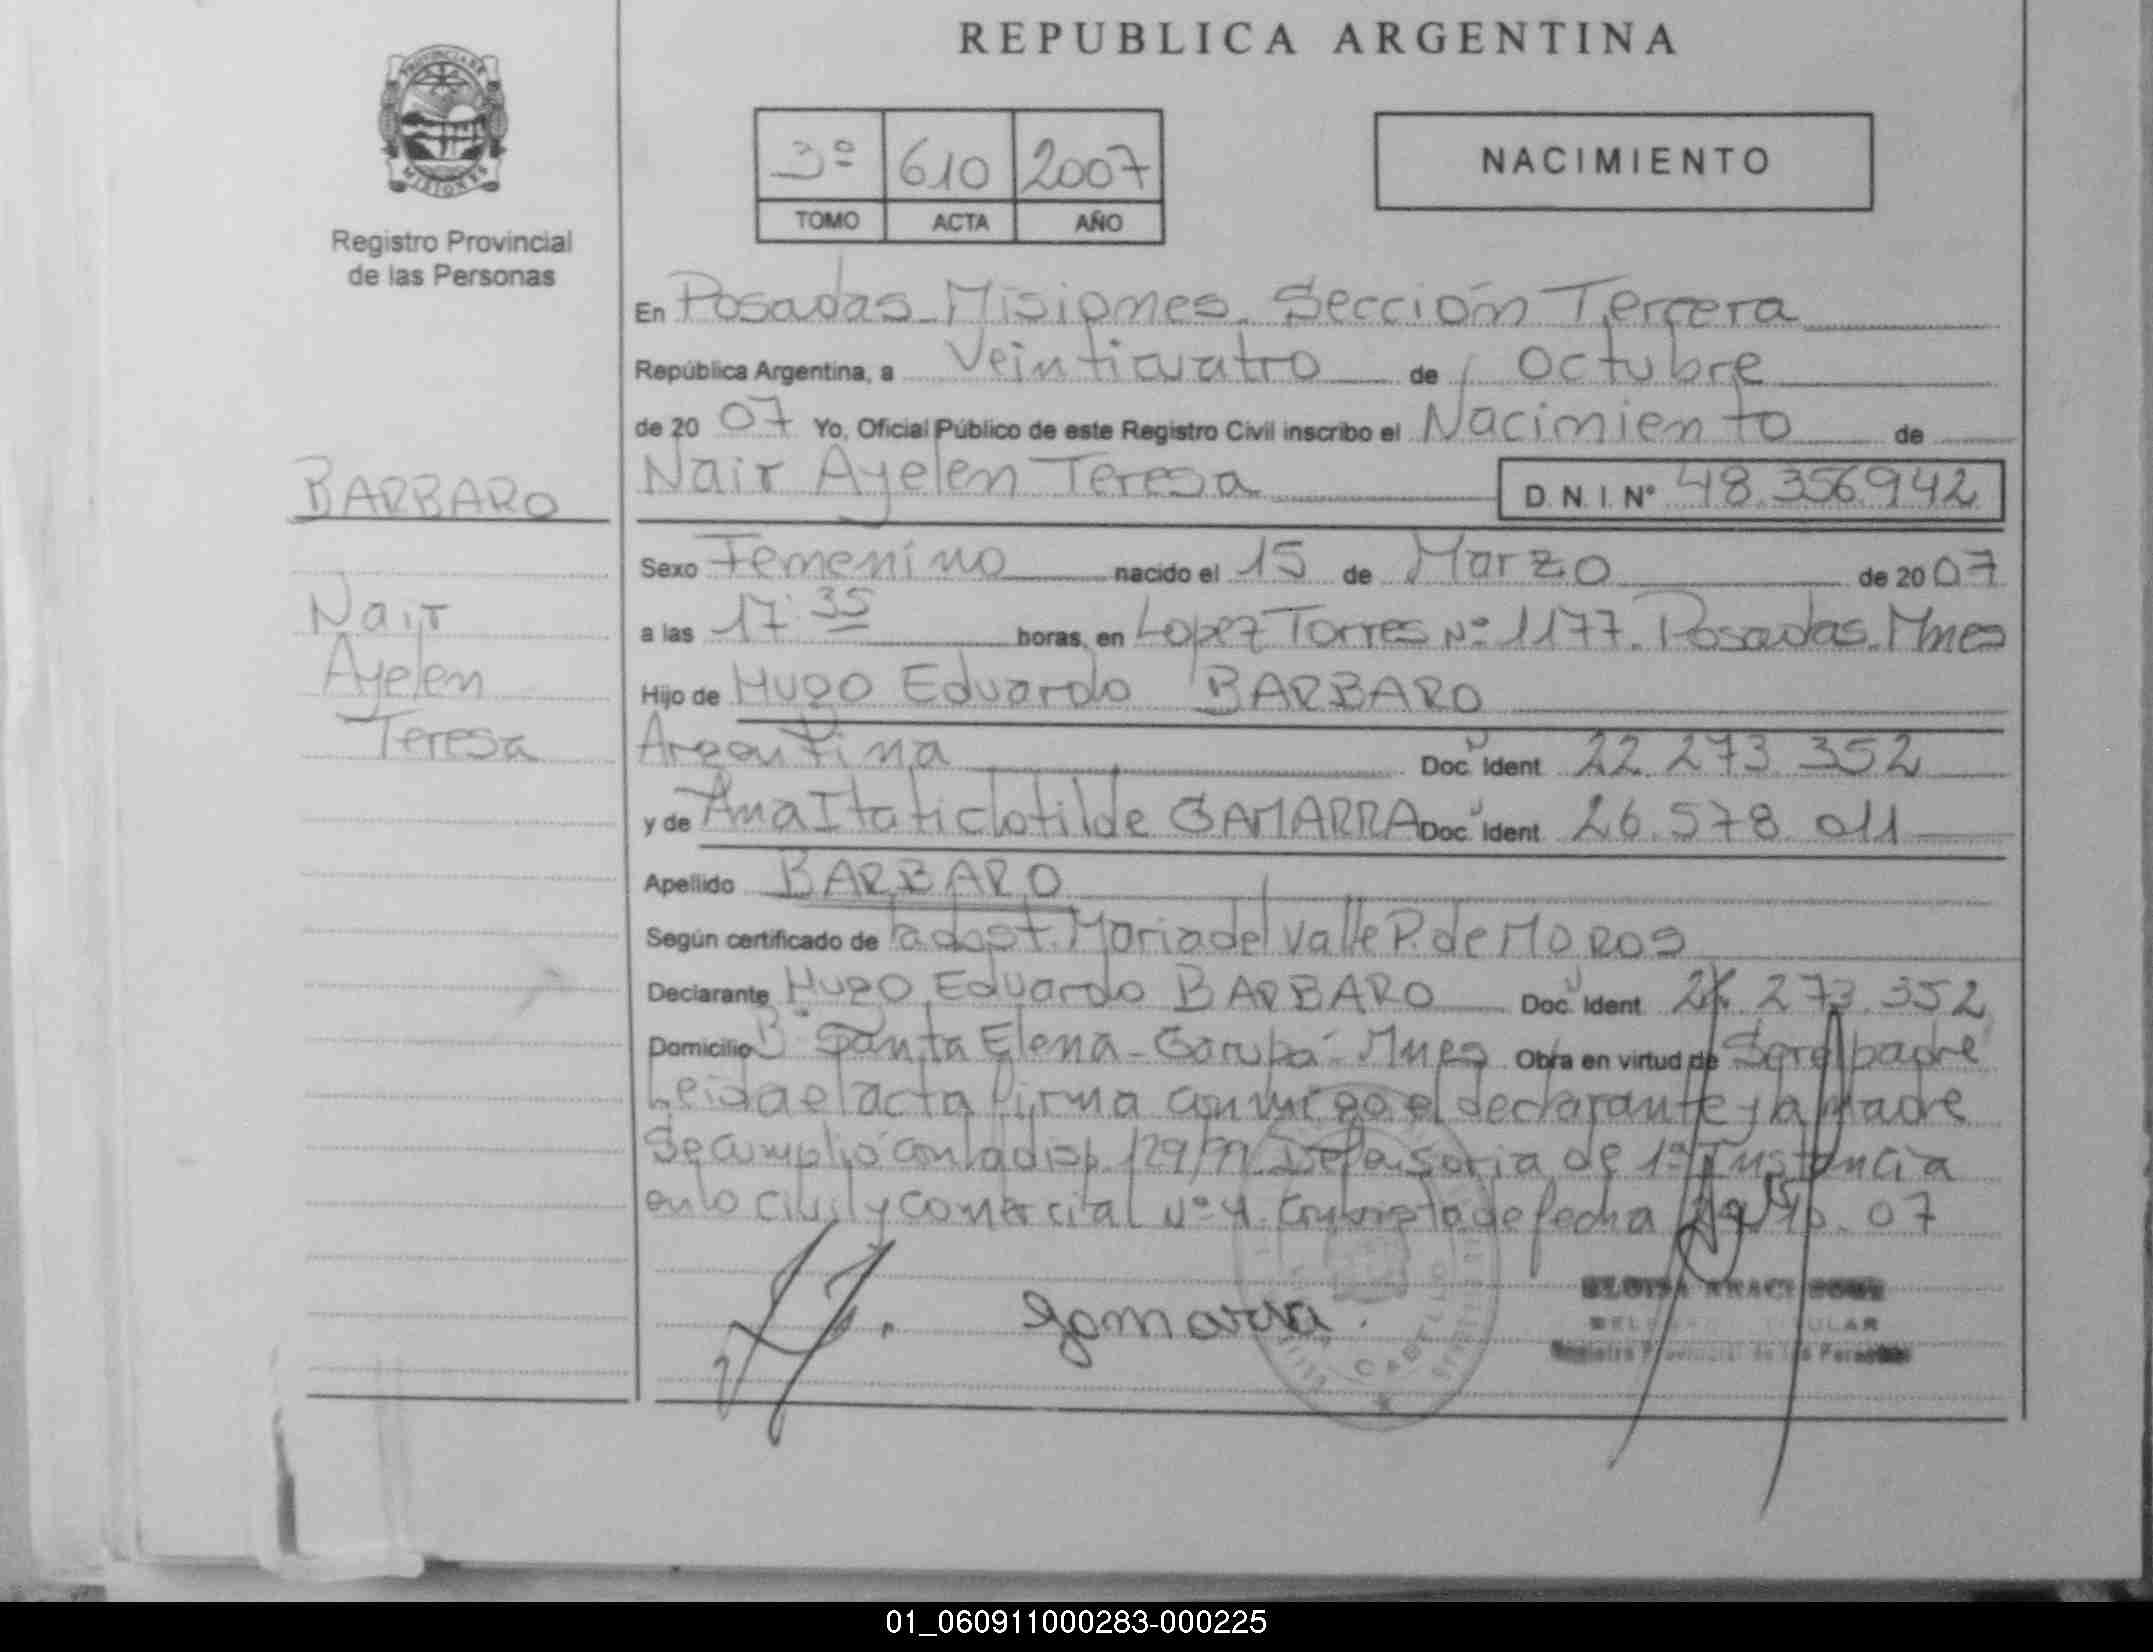 REPUBLICA ARGENTINA
PROVINCIA DE
MISIONES
Registro Provincial
de las Personas
3º 610 2007
TOMO ACTA AÑO
NACIMIENTO
En Posadas - Misiones. Sección Tercera
República Argentina, a Veinticuatro de Octubre
de 20 07 Yo, Oficial Público de este Registro Civil inscribo el Nacimiento de
BARBARO
Nair Ayelen Teresa D.N.I. Nº 48.356.942
Sexo Femenino nacido el 15 de Marzo de 20 07
Nair
Ayelen
Teresa
a las 17:35 horas, en Lopez Torres Nº 1177. Posadas. Mnes
Hijo de Hugo Eduardo BARBARO
Argentina Doc. Ident 22.273.352
y de Ana Itati Clotilde GAMARRA Doc. Ident 26.578.011
Apellido BARBARO
Según certificado de la obst. Maria del Valle P. de MOROS
Declarante Hugo Eduardo BARBARO Doc. Ident 22.273.352
Domicilio Bº Santa Elena - Garupá - Mnes Obra en virtud de Ser el padre
Leida el acta firma conmigo el declarante y la madre
Se cumplió con la disp. 129/99. Defensoria de 1ª Instancia
en lo Civil y Comercial Nº 4. de fecha 10. 07
Gamarra.
TITULAR
Registro Provincial de las Personas
01_060911000283-000225